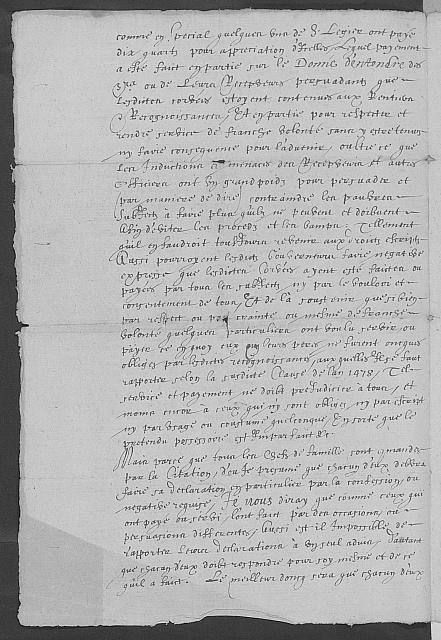 comme en special quelques uns de St Legier ont payé
dix quarts pour apreciation d'icelles, lequel payement
a esté fait en partie sur le
ou de Leurs Recepveurs persuadants que
Lesdittes corvees estoyent contenues aux Rentiers
& Recognoissances, Et en partie pour respecter et
rendre service de franche volonté sans y estre tenus
ny faire consequence pour l'advenir, oultre ce que
Les Inductions & menaces des Recepveurs et autres
Officiers ont un grand poids pour persuader et
par maniere de dire contraindre les pauvres
Subjects à faire plus qu'ils ne peuvent et doibvent
Afin d'eviter les proceds et les bamps; Tellement
qu'il en faudroit tousjours revenir aux droits escripts
Aussi pourroyent lesdits Gouverneurs faire negative
expresse que lesdittes Corvées ayent esté faites ou
payées par tous les subjects ny par le vouloir et
consentement de tous, Et de là soustenir que si bien
par respect ou par crainte ou mesme de franche
volonté quelques particuliers ont voulu servir ou
payer ce à quoy eux ny leurs peres ne furent oncques
obligés par lesdictes recognoissances, aux quelles il se faut
rapporter selon la susditte Clause de l'an 1478, Tel
service et payement ne doibt prejudicier à tous, et
moins encor à ceux qui n'y sont obligés ny par escript
ny par usage ou coustume quelconque, En sorte que le
pretendu possessoire est imparfait &c.
Mais parce que tous les Chefs de famille sont mandés
par la Citation, & se presume que chacun d'eux debvra
faire sa declaration en particulier par la confession ou
negative requise, Je vous diray que comme ceux qui
ont payé ou servi l'ont fait par des occasions, ou
persuasions differentes, Aussi est il impossible de
rapporter leurs declarations à un seul advis, d'autant
que chacun d'eux doibt respondre pour soy mesme et de ce
qu'il a faict. Le meilleur doncq sera que chacun d'eux